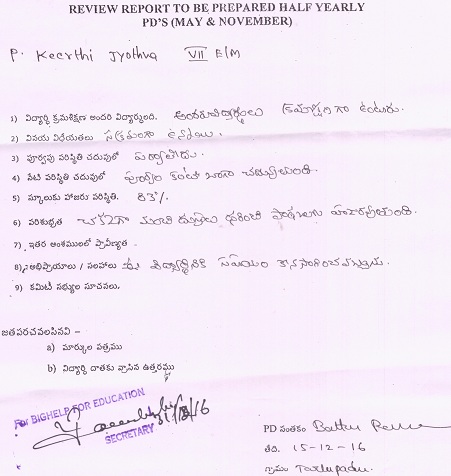 REVIEW REPORT TO BE PREPARED HALF YEARLY
PD'S (MAY & NOVEMBER)
P. Keerthi Jyothva VII E/M
1) విద్యార్థి క్రమశిక్షణ అందరి విద్యార్థుంది. అందరు విద్యార్థులు క్రమశిక్షణగా ఉంటారు.
2) వినయ విధేయతలు సక్రమంగా ఉన్నాయి.
3) పూర్వపు పరిస్థితి చదువులో పర్వాలేదు.
4) నేటి పరిస్థితి చదువులో పూర్వం కంటే బాగా చదువుతుంది.
5) స్కూలుకు హాజరు పరిస్థితి. 83%.
6) పరిశుభ్రత చక్కగా మంచి దుస్తులు ధరించి పాఠశాలకు హాజరవుతుంది.
7) ఇతర అంశములలో ప్రావీణ్యత -
8) అభిప్రాయాలు / సలహాలు ఈ విద్యార్థినికి సహాయం కొనసాగించవచ్చును.
9) కమిటీ సభ్యుల సూచనలు.
జతపరచవలసినవి –
a) మార్కుల పత్రము
b) విద్యార్థి దాతకు వ్రాసిన ఉత్తరము
For BIGHELP FOR EDUCATION
SECRETARY
PD సంతకం
తేది. 15-12-16
గ్రామం Tarlupadu.